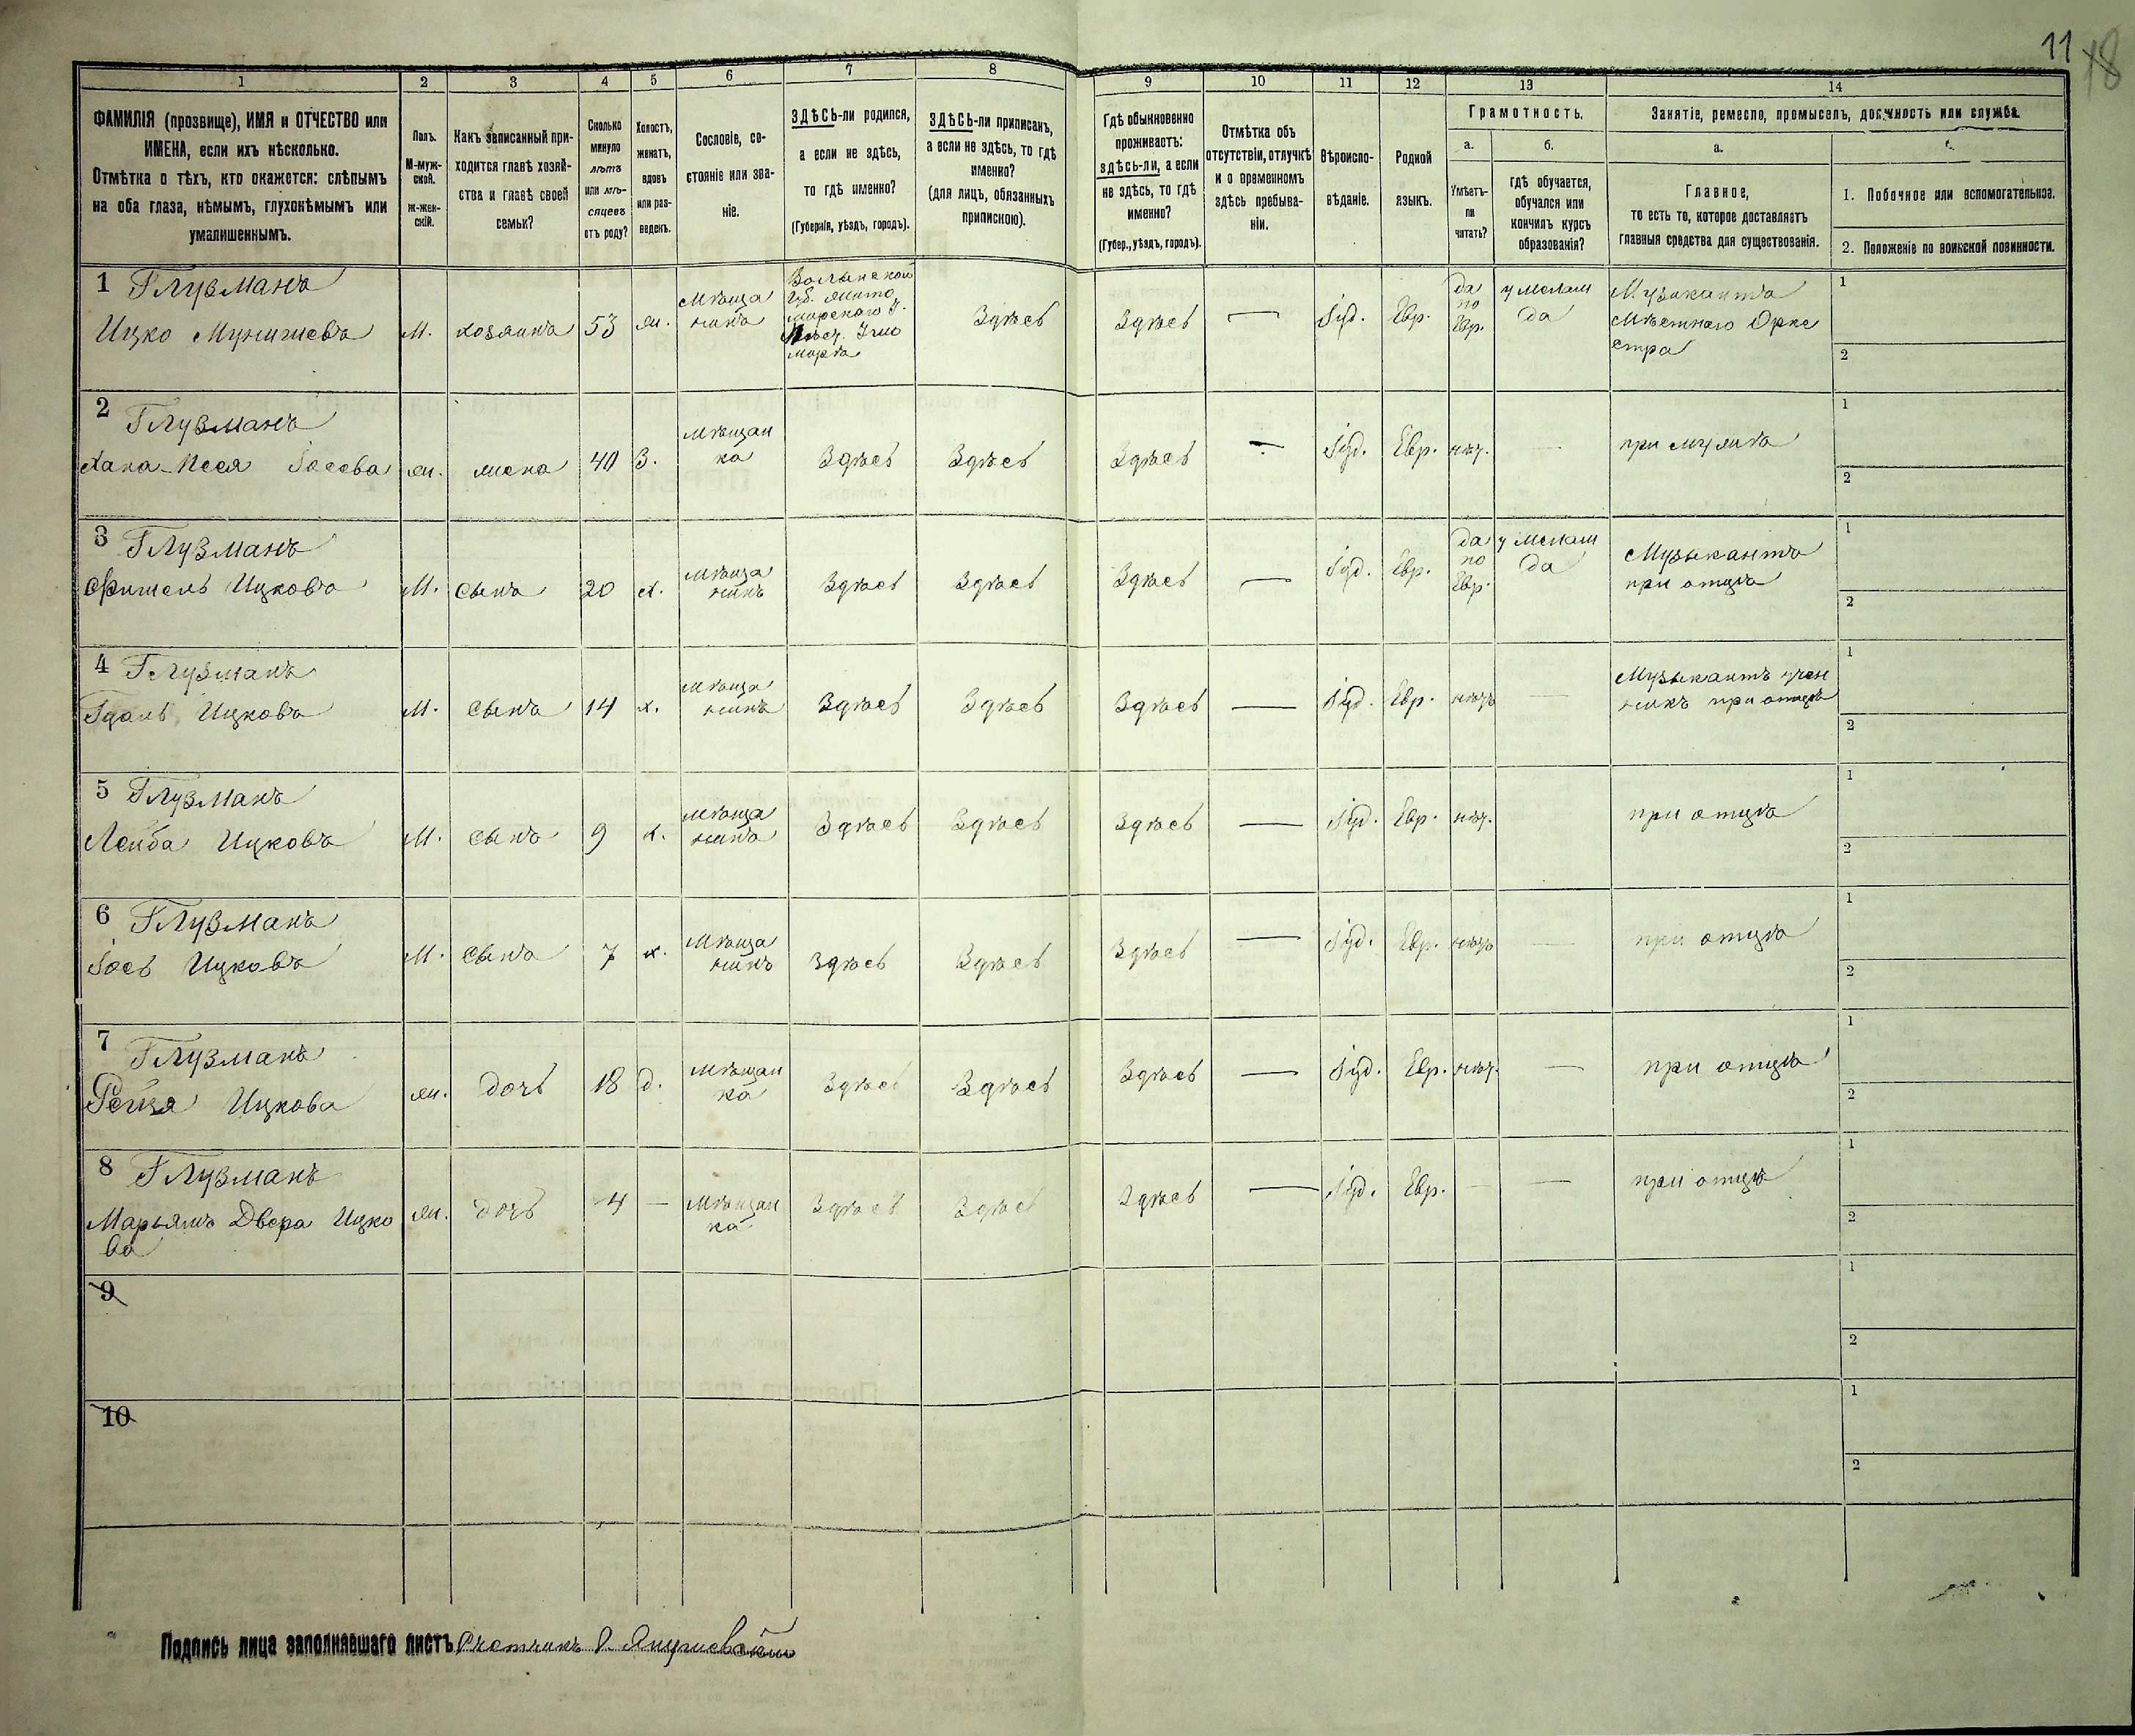 11
18
1
2
3
4
5
6
7
8
9
10
11
12
13
14
ФАМИЛІЯ (прозвище), ИМЯ и ОТЧЕСТВО или
ИМЕНА, если ихъ нѣсколько.
Отмѣтка о тѣхъ, кто окажется: слѣпымъ
на оба глаза, нѣмымъ, глухонѣмымъ или
умалишеннымъ.
Полъ.
М-муж-
ской.
Ж-жен-
скій.
Какъ записанный при-
ходится главѣ хозяй-
ства и главѣ своей
семьи?
Сколько
минуло
лѣтъ
или мѣ-
сяцевъ
отъ роду?
Холостъ,
женатъ,
вдовъ
или раз-
веденъ.
Сословіе, со-
стояніе или зва-
ніе.
ЗДѢСЬ-ли родился,
а если не здѣсь,
то гдѣ именно?
(Губернія, уѣздъ, городъ).
ЗДѢСЬ-ли приписанъ,
а если не здѣсь, то гдѣ
именно?
(для лицъ, обязанныхъ
припискою).
Гдѣ обыкновенно
проживаетъ:
здѣсь-ли, а если
не здѣсь, то гдѣ
именно?
(Губер., уѣздъ, городъ).
Отмѣтка объ
отсутствіи, отлучкѣ
и о временномъ
здѣсь пребыва-
ніи.
Вѣроиспо-
вѣданіе.
Родной
языкъ.
Грамотность.
а.
Умѣетъ-
ли
читать?
б.
гдѣ обучается,
обучался или
кончилъ курсъ
образованія?
Занятіе, ремесло, промыселъ, должность или служба.
а.
Главное,
то есть то, которое доставляетъ
главныя средства для существованія.
1. Побочное или вспомогательное.
2. Положеніе по воинской повинности.
1 Глузманъ
Ицко Мунишевъ
М.
хозяинъ
53
ж.
Мѣща
нинъ
Волынской
Губ. Жито
мирскаго У.
Здѣсь
Здѣсь
—
Іуд.
Евр.
да
по
Евр.
у мелам
да
Музыкантъ
Мѣстнаго Орке
стра
1
2
2 Глузманъ
Хана-Песя Іосева
ж.
жена
40
З.
Мѣщан
ка
Здѣсь
Здѣсь
Здѣсь
—
Іуд.
Евр.
нѣт.
—
при мужѣ
1
2
3 Глузманъ
Фишель Ицковъ
М.
Сынъ
20
х.
Мѣща
нинъ
Здѣсь
Здѣсь
Здѣсь
—
Іуд.
Евр.
да
по
Евр.
у мелам
да
Музыкантъ
при отцѣ
1
2
4 Глузманъ
Гдаль Ицковъ
М.
Сынъ
14
х.
Мѣща
нинъ
Здѣсь
Здѣсь
Здѣсь
—
Іуд.
Евр.
нѣтъ
—
Музыкантъ учен
никъ при отцѣ
1
2
5 Глузманъ
Лейба Ицковъ
М.
Сынъ
9
х.
Мѣща
нинъ
Здѣсь
Здѣсь
Здѣсь
—
Іуд.
Евр.
нѣт.
при отцѣ
1
2
6 Глузманъ
Іось Ицковъ
М.
Сынъ
7
х.
Мѣща
нинъ
Здѣсь
Здѣсь
Здѣсь
—
Іуд.
Евр.
нѣтъ
—
при отцѣ
1
2
7 Глузманъ
Рейзя Ицкова
ж.
дочь
18
д.
Мѣщан
ка
Здѣсь
Здѣсь
Здѣсь
—
Іуд.
Евр.
нѣт.
—
при отцѣ
1
2
8 Глузманъ
Марьямъ Двера Ицко
ва
ж.
дочь
4
—
Мѣщан
ка
Здѣсь
Здѣсь
Здѣсь
—
Іуд.
Евр.
—
—
при отцѣ
1
2
9
1
2
10
1
2
Подпись лица заполнявшаго листъ Счетчикъ